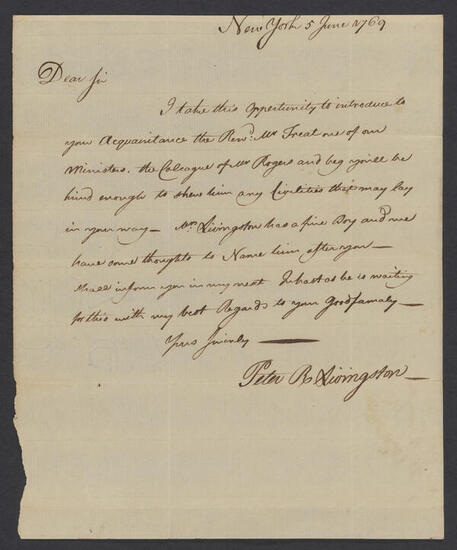 New York 5 June 1769
Dear Sir
I take this Oppertunity to introduce to
your Acquaintance the Revd. Mr Treat one of our
Ministers. the Coleague of Mr Rogers and beg you'll be
kind enough to shew him any Civilities that may lay
in your way — Mrs Livingston has a fine Boy and we
have some thoughts to Name him after you —
shall inform you in my next. In hast as he is waiting
for this with my best Regards to your Good famaly —
Yours Sincerly —
Peter R Livingston —